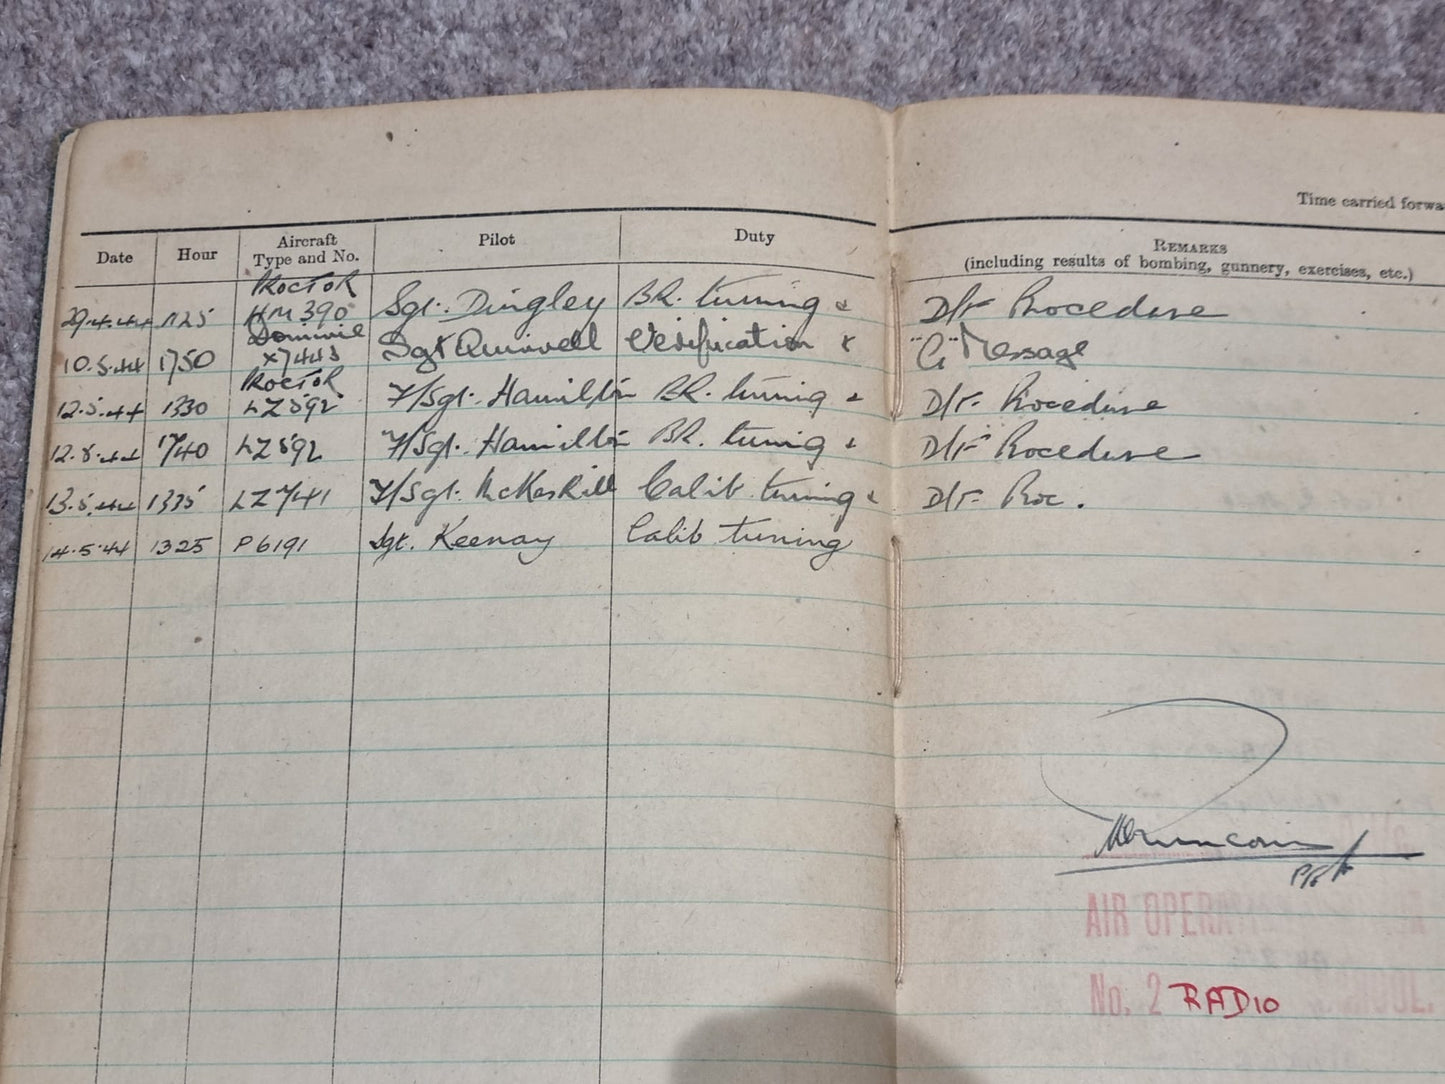 Time carried forwa
Date Hour Aircraft Type and No. Pilot Duty REMARKS (including results of bombing, gunnery, exercises, etc.)
29.4.44 1125 Proctor HM 390 Sgt. Dingley BR. tuning & D/F Procedure
10.5.44 1750 Dominie X7443 Sgt Quinnell Verification & "G" Message
12.5.44 1330 Proctor LZ 592 F/Sgt. Hamilton BR. tuning & D/F. Procedure
12.5.44 1740 LZ 592 F/Sgt. Hamilton BR. tuning & D/F Procedure
13.5.44 1335 LZ 741 F/Sgt. McKaskill Calib tuning & D/F. Proc.
14.5.44 1325 P6191 Sgt. Keenay Calib tuning
AIR OPERAT
No. 2 RADIO SCHOOL.